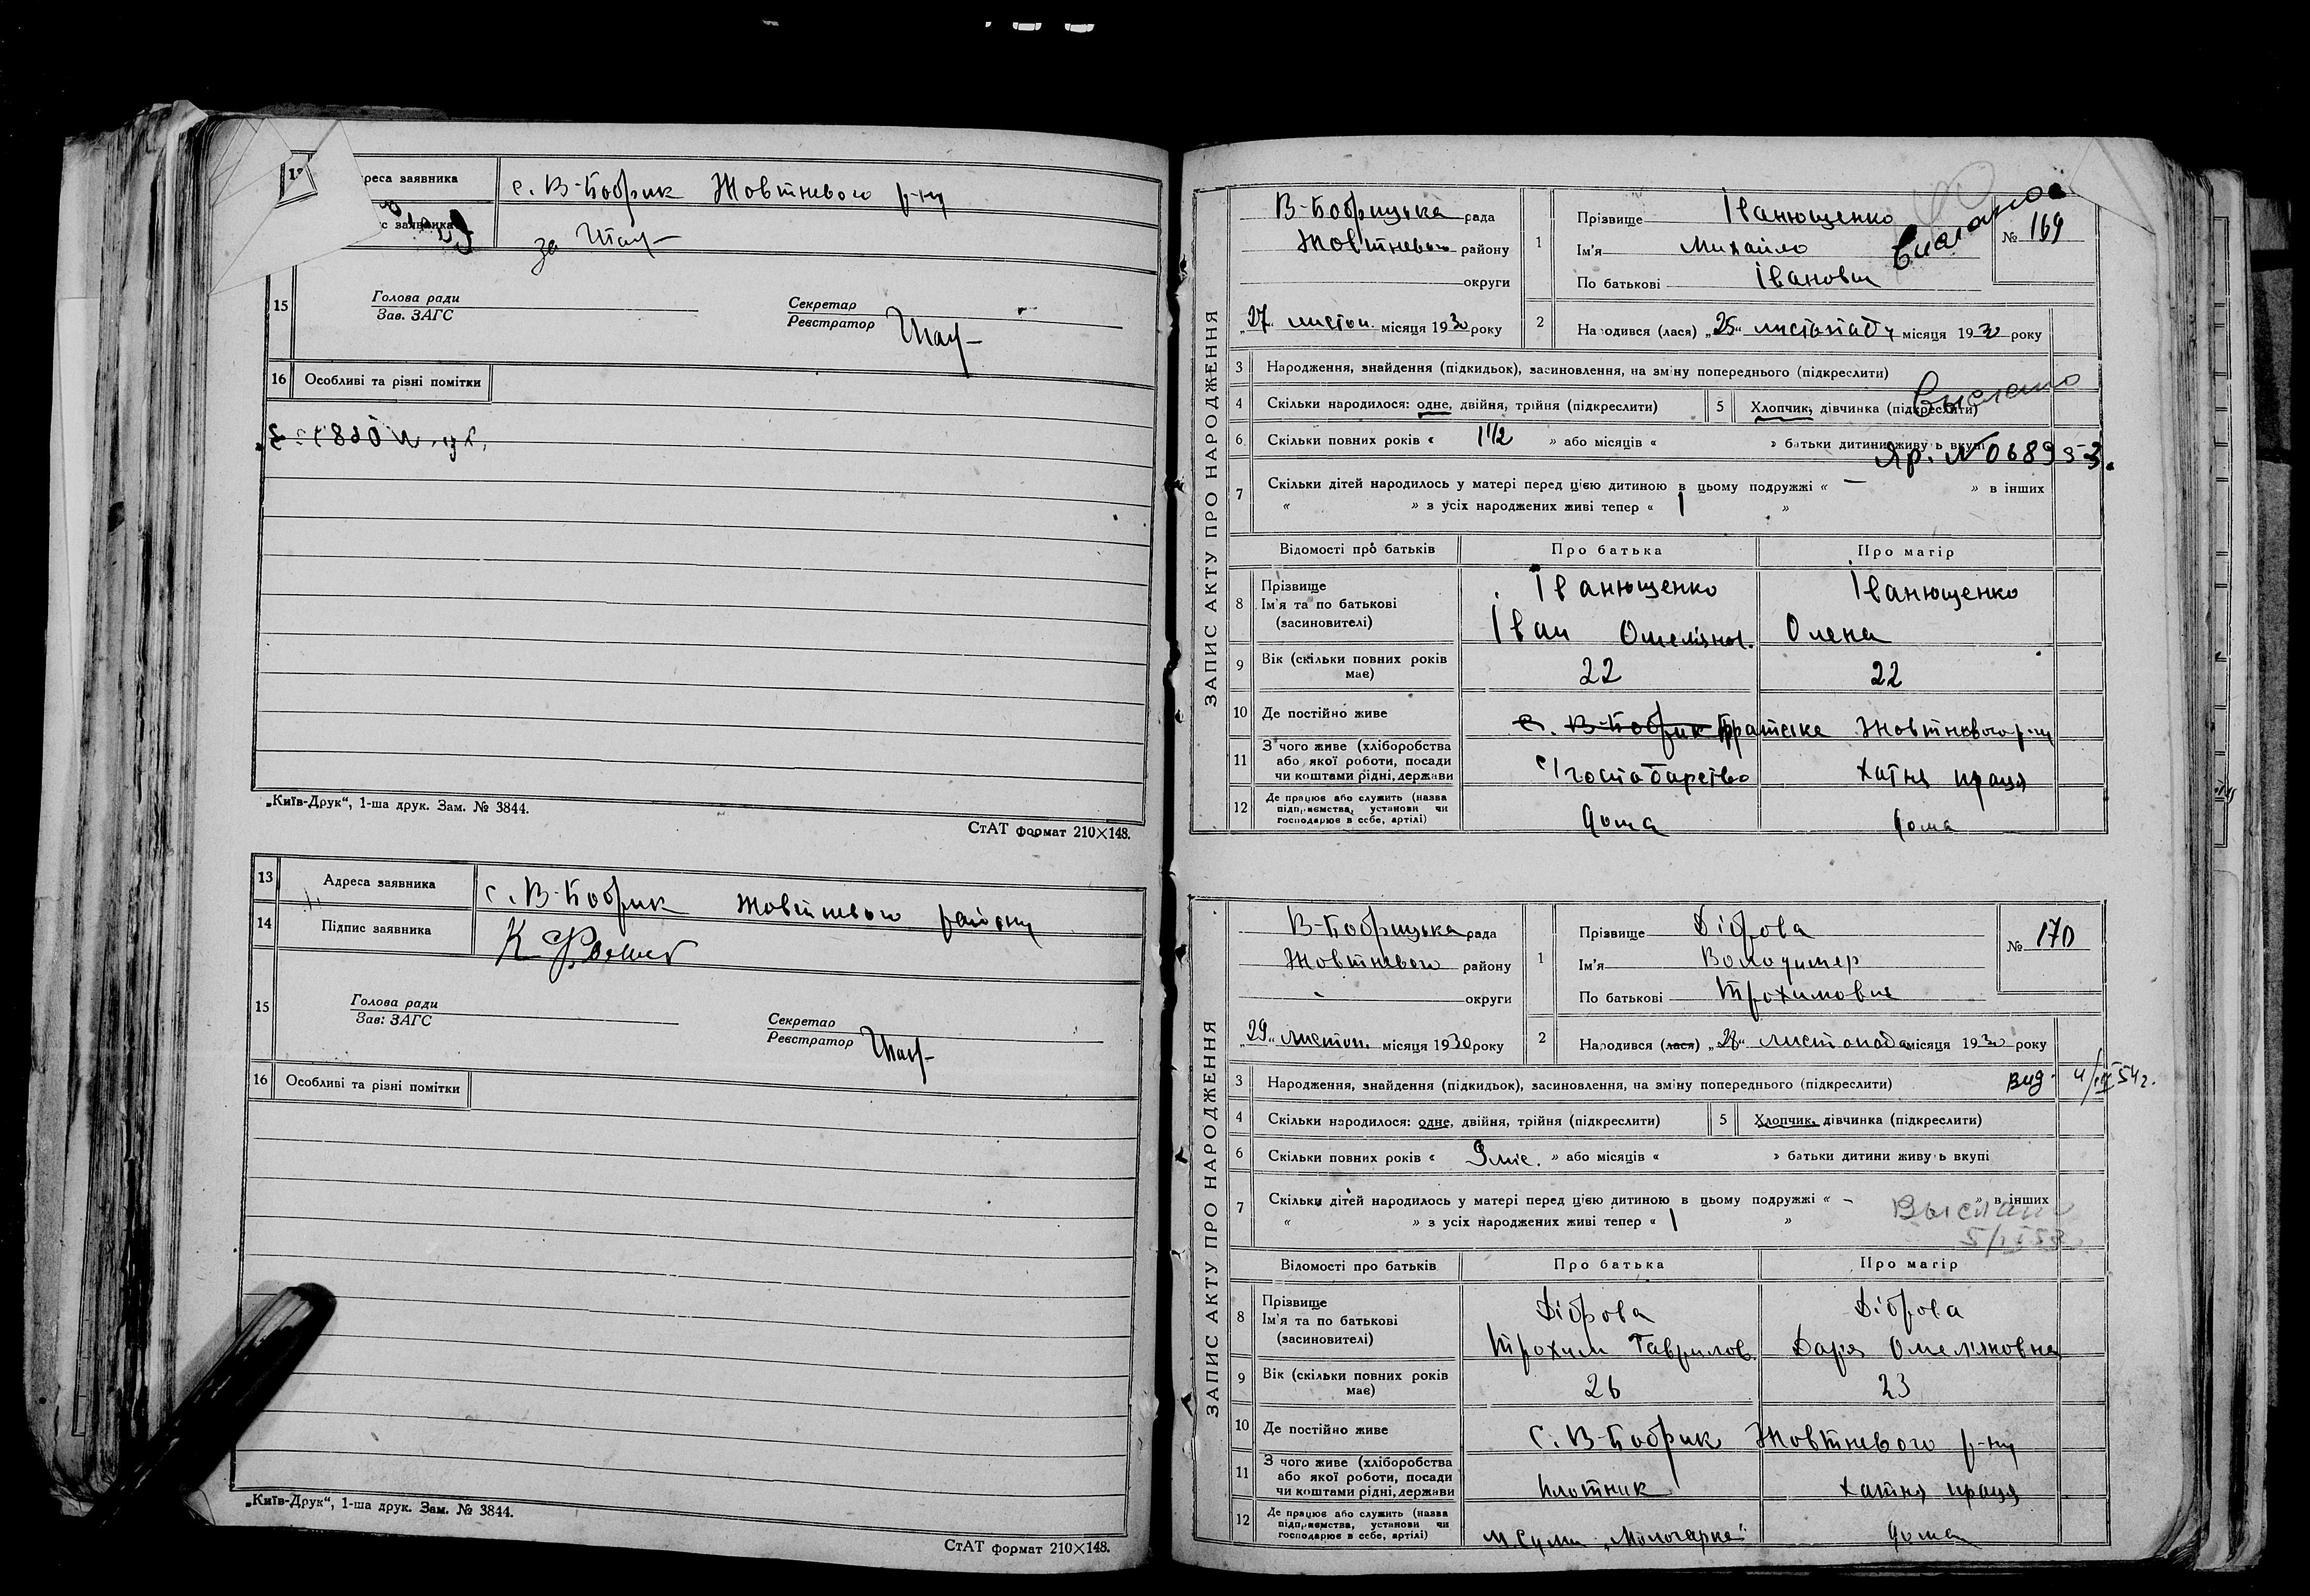 реса заявника с. В-Бобрик Жовтневого р-ну
с заявника за
15 Голова ради
Зав. ЗАГС
Секретар
Реєстратор
16 Особливі та різні помітки
„Київ-Друк“, 1-ша друк. Зам. № 3844.
СтАТ формат 210×148.
13 Адреса заявника с. В-Бобрик Жовтневого району
14 Підпис заявника К
15 Голова ради
Зав: ЗАГС
Секретар
Реєстратор
16 Особливі та різні помітки
„Київ-Друк“, 1-ша друк. Зам. № 3844.
СтАТ формат 210×148.
ЗАПИС АКТУ ПРО НАРОДЖЕННЯ
В-Бобрицька рада
Жовтневого району
округи
„27“ листоп. місяця 1930 року
1 Прізвище Іванющенко
Ім'я Михайло
По батькові Іванович
№ 169
2 Народився (лася) „25“ листопаду місяця 1930 року
3 Народження, знайдення (підкидьок), засиновлення, на зміну попереднього (підкреслити)
Выслано
4 Скільки народилося: одне, двійня, трійня (підкреслити) 5 Хлопчик, дівчинка (підкреслити)
6 Скільки повних років « 1 1/2 » або місяців « » батьки дитини живуть вкупі
Яр. № 068953.
7 Скільки дітей народилось у матері перед цією дитиною в цьому подружжі « — » в інших
« » з усіх народжених живі тепер « 1 »
Відомості про батьків Про батька Про матір
8 Прізвище Іванющенко Іванющенко
Ім'я та по батькові
(засиновителі) Іван Омелянов. Олена
9 Вік (скільки повних років має) 22 22
10 Де постійно живе с. В-Бобрик Братське Жовтневого р-ну
11 З чого живе (хліборобства
або якої роботи, посади
чи коштами рідні, держави С/господарство хатня праця
12 Де працює або служить (назва
підприємства, установи чи
господарює в себе, артілі) дома дома
ЗАПИС АКТУ ПРО НАРОДЖЕННЯ
В-Бобрицька рада
Жовтневого району
округи
„29“ листоп. місяця 1930 року
1 Прізвище Діброва
Ім'я Володимер
По батькові Трохимович
№ 170
2 Народився (лася) „28“ листопада місяця 1930 року
3 Народження, знайдення (підкидьок), засиновлення, на зміну попереднього (підкреслити)
4 Скільки народилося: одне, двійня, трійня (підкреслити) 5 Хлопчик, дівчинка (підкреслити)
6 Скільки повних років « 9 міс. » або місяців « » батьки дитини живуть вкупі
7 Скільки дітей народилось у матері перед цією дитиною в цьому подружжі « — » в інших
« » з усіх народжених живі тепер « 1 »
Выслано
Відомості про батьків Про батька Про матір
8 Прізвище Діброва Діброва
Ім'я та по батькові
(засиновителі) Трохим Гаврилов. Дар'я Омеляновна
9 Вік (скільки повних років має) 26 23
10 Де постійно живе с. В-Бобрик Жовтневого р-ну
11 З чого живе (хліборобства
або якої роботи, посади
чи коштами рідні, держави плотник хатня праця
12 Де працює або служить (назва
підприємства, установи чи
господарює в себе, артілі) м. Суми дома